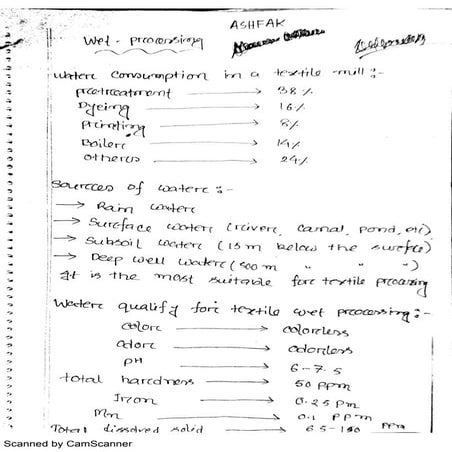 ASHFAK
Wet - processing
Water consumption in a textile mill :-
pretreatment → 38%
Dyeing → 16%
Printing → 8%
Boiler → 14%
others → 24%
Sources of water :-
→ Rain water
→ Surface water (river, canal, pond, etc)
→ Subsoil water (15 m below the surface)
→ Deep well water (500 m " " ")
It is the most suitable for textile processing
Water quality for textile wet processing :-
color → colorless
odore → odorless
pH → 6-7.5
total hardness → 50 ppm
Iron → 0.25 pm
Mn → 0.1 ppm
Total dissolved solid → 65-150 ppm
Scanned by CamScanner